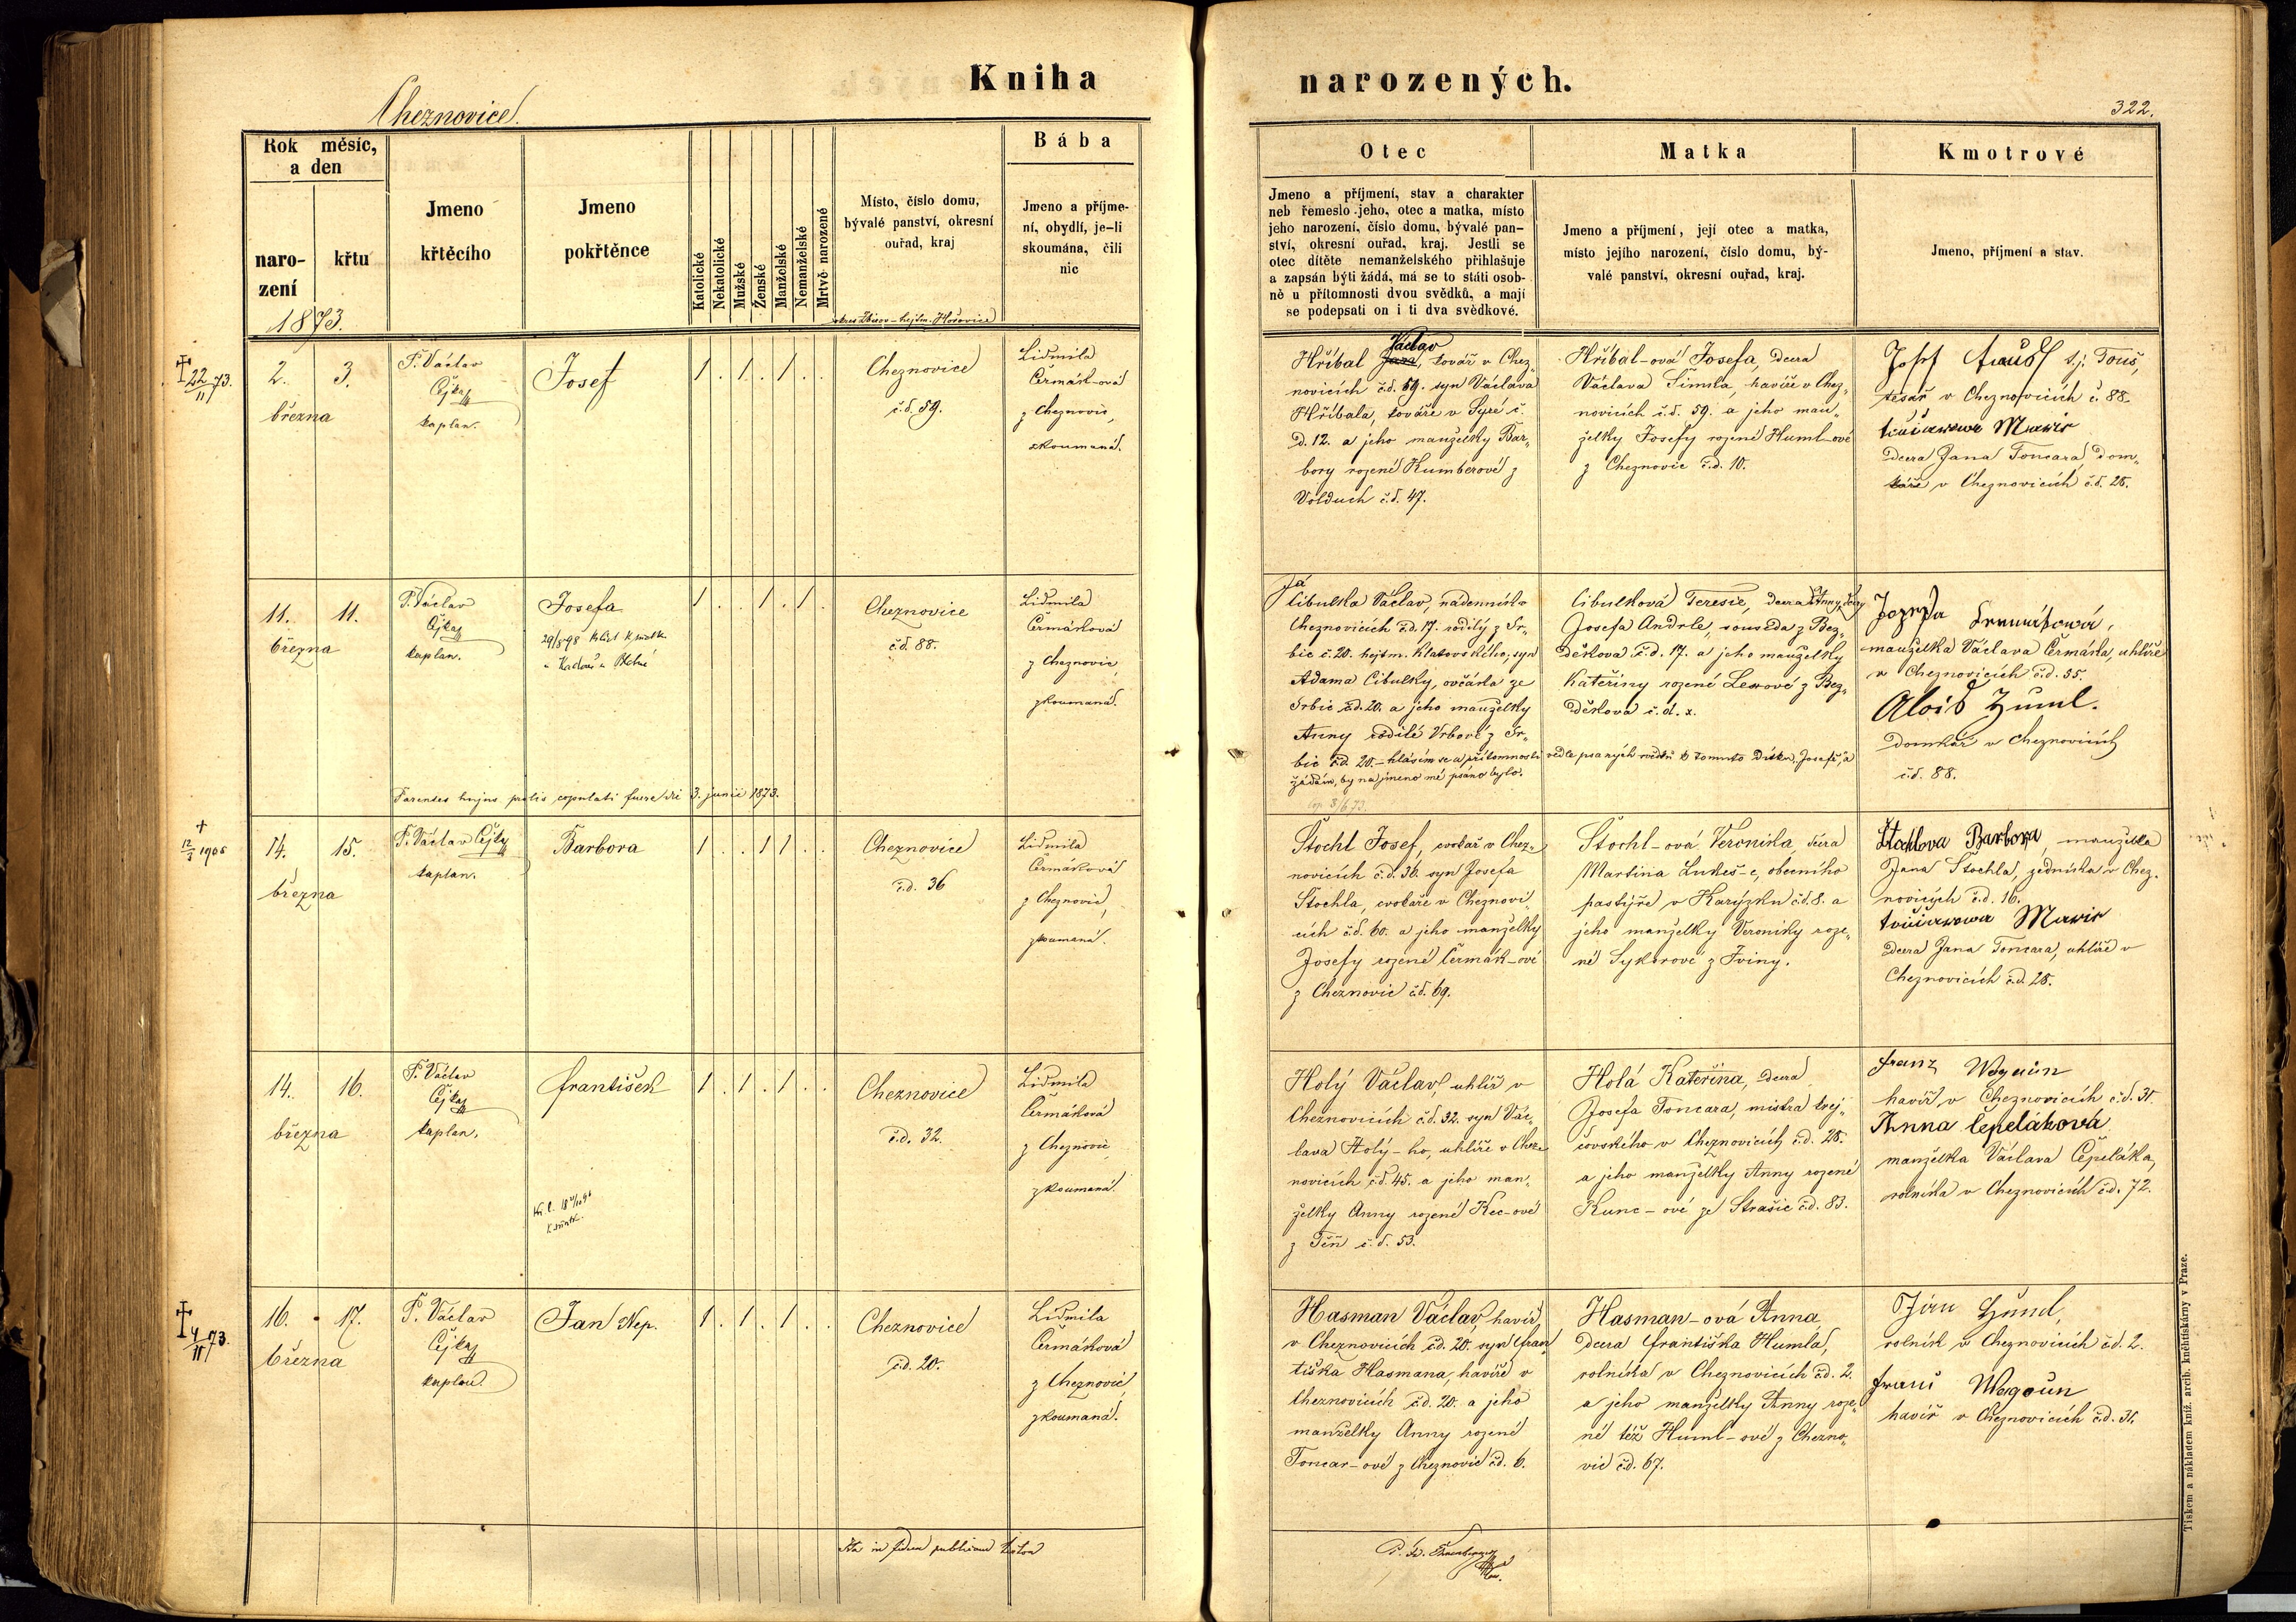 Kniha narozených.
Cheznovice.
322.
Rok měsíc,
a den
naro-
zení
křtu
1873.
Jmeno
křtěcího
Jmeno
pokřtěnce
Katolické
Nekatolické
Mužské
Ženské
Manželské
Nemanželské
Mrtvě narozené
Místo, číslo domu,
bývalé panství, okresní
ouřad, kraj
okres Zbirov – hejtm. Hořovice
Bába
Jmeno a příjme-
ní, obydlí, je-li
skoumána, čili
nic
Otec
Jmeno a příjmení, stav a charakter
neb řemeslo jeho, otec a matka, místo
jeho narození, číslo domu, bývalé pan-
ství, okresní ouřad, kraj. Jestli se
otec dítěte nemanželského přihlašuje
a zapsán býti žádá, má se to státi osob-
ně u přítomnosti dvou svědků, a mají
se podepsati on i ti dva svědkové.
Matka
Jmeno a příjmení, její otec a matka,
místo jejího narození, číslo domu, bý-
valé panství, okresní ouřad, kraj.
Kmotrové
Jmeno, příjmení a stav.
† 22/11 73.
2. 3.
března
P. Václav
Čejka
kaplan.
Josef
1 . 1 . 1 . .
Cheznovice
č.d. 59.
Lidmila
Čermák-ová
z Cheznovic,
zkoumaná.
Václav
Hříbal Jan, kovář v Chez-
novicích č.d. 59. syn Václava
Hříbala, kováře v Syré č.
d. 12. a jeho manželky Bar-
bory rozené Kumberové z
Volduch č.d. 47.
Hříbal-ová Josefa, dcera
Václava Šimka, havíře v Chez-
novicích č.d. 59. a jeho man-
želky Josefy rozené Huml-ové
z Cheznovic č.d. 10.
Josef
tesař v Cheznovicích č. 88.
Marie
dcera Jana Toncara, dom-
káře v Cheznovicích č.d. 28.
11. 11.
března
P. Václav
Čejka
kaplan.
Josefa
1 . . 1 . 1 .
Cheznovice
č.d. 88.
Lidmila
Čermáková
z Cheznovic,
zkoumaná.
Já
Cibulka Václav, nádenník v
Cheznovicích č.d. 17. rodilý z Sr-
bic č. 20. hejtm. Klatovského, syn
Adama Cibulky, ovčáka ze
Srbic č.d. 20. a jeho manželky
Anny rodilé Vrbové z Sr-
bic č.d. 20. – hlásím se u přítomnosti vedle psaných svědků k tomuto dítku, Josefě, a
žádám, by na jmeno mé psáno bylo.
Cibulková Teresie, dcera
Josefa Andrle, souseda z Bez-
děkova č.d. 17. a jeho manželky
Kateřiny rozené Lexové z Bez-
děkova č.d. x.
manželka Václava Čermáka, uhlíře
v Cheznovicích č.d. 55.
Alois Huml.
domkář v Cheznovicích
č.d. 88.
Parentes hujus prolis copulati fuere die 3. junii 1873.
cop. 3/6 73.
† 12/3 1906
14. 15.
března
P. Václav Čejka
kaplan.
Barbora
1 . . 1 1 . .
Cheznovice
č.d. 36
Lidmila
Čermáková
z Cheznovic,
zkoumaná.
Štochl Josef, cvokař v Chez-
novicích č.d. 36. syn Josefa
Štochla, cvokaře v Cheznovi-
cích č.d. 60. a jeho manželky
Josefy rozené Čermák-ové
z Cheznovic č.d. 69.
Štochl-ová Veronika, dcera
Martina Lukeš-e, obecního
pastýře v Karýzku č.d. 8. a
jeho manželky Veroniky roze-
né Sykorové z Tviny.
Štochlova Barbora, manželka
Jana Štochla, zedníka v Chez-
novicích č.d. 16.
Marie
dcera Jana Toncara, uhlíře v
Cheznovicích č.d. 28.
14. 16.
března
P. Václav
Čejka
kaplan.
František
1 . 1 . 1 . .
Cheznovice
č.d. 32.
Lidmila
Čermáková
z Cheznovic,
zkoumaná.
Holý Václav, uhlíř v
Cheznovicích č.d. 32. syn Vác-
lava Holý-ho, uhlíře v Chez-
novicích č.d. 45. a jeho man-
želky Anny rozené Kec-ové
z Těň č.d. 53.
Holá Kateřina, dcera
Josefa Toncara, mistra krej-
čovského v Cheznovicích č.d. 28.
a jeho manželky Anny rozené
Kunc-ové ze Strašic č.d. 83.
Franz
havíř v Cheznovicích č.d. 31.
Anna Čepelákova
manželka Václava Čepeláka,
rolníka v Cheznovicích č.d. 72.
† 4/11 73.
16. 17.
března
P. Václav
Čejka
kaplan.
Jan Nep.
1 . 1 . 1 . .
Cheznovice
č.d. 20.
Lidmila
Čermáková
z Cheznovic,
zkoumaná.
Hasman Václav, havíř,
v Cheznovicích č.d. 20. syn Fran-
tiška Hasmana, havíře v
Cheznovicích č.d. 20. a jeho
manželky Anny rozené
Toncar-ové z Cheznovic č.d. 6.
Hasman-ová Anna
dcera Františka Humla,
rolníka v Cheznovicích č.d. 2.
a jeho manželky Anny roze-
né též Huml-ové z Chezno-
vic č.d. 67.
Huml,
rolník v Cheznovicích č.d. 2.
havíř v Cheznovicích č.d. 31.
Ita in fidem publicam testor
Tiskem a nákladem kníž. arcib. kněhtiskárny v Praze.